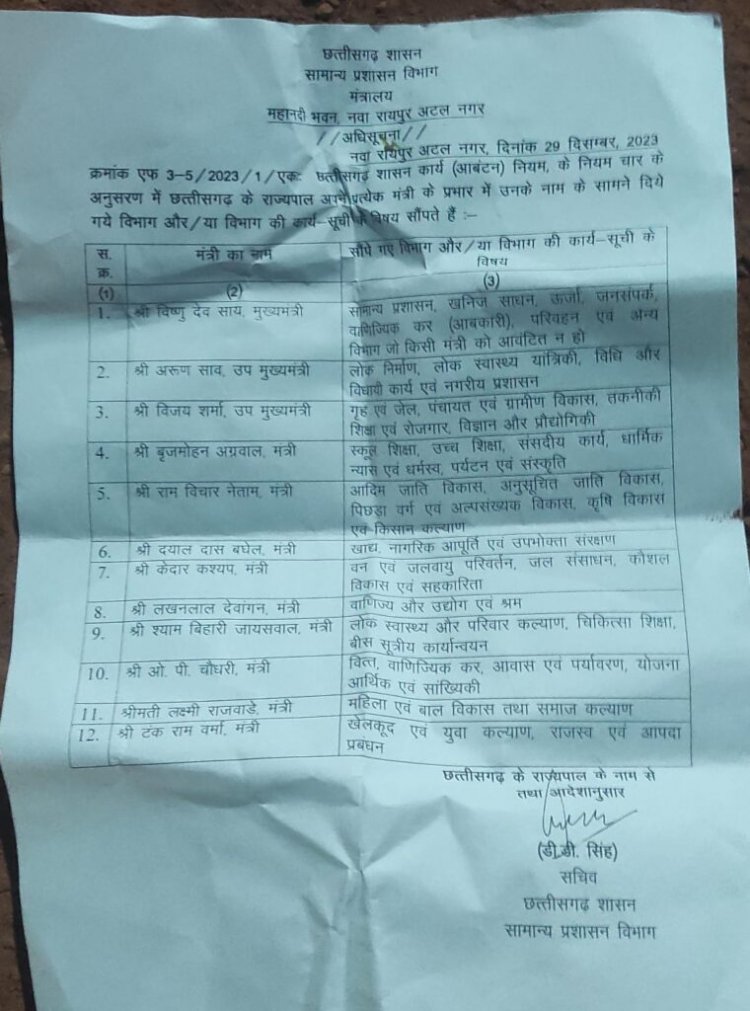 छत्तीसगढ़ शासन
सामान्य प्रशासन विभाग
मंत्रालय
महानदी भवन, नवा रायपुर अटल नगर
//अधिसूचना//
नवा रायपुर अटल नगर, दिनांक 29 दिसम्बर, 2023
क्रमांक एफ 3-5/2023/1/एकः छत्तीसगढ़ शासन कार्य (आबंटन) नियम, के नियम चार के
अनुसरण में छत्तीसगढ़ के राज्यपाल अपने प्रत्येक मंत्री के प्रभार में उनके नाम के सामने दिये
गये विभाग और/या विभाग की कार्य-सूची के विषय सौंपते हैं :-
स. क्र.
मंत्री का नाम
सौंपे गए विभाग और/या विभाग की कार्य-सूची के
विषय
(1) (2) (3)
1. श्री विष्णु देव साय, मुख्यमंत्री सामान्य प्रशासन, खनिज साधन, ऊर्जा, जनसंपर्क,
वाणिज्यिक कर (आबकारी), परिवहन एवं अन्य
विभाग जो किसी मंत्री को आवंटित न हो
2. श्री अरूण साव, उप मुख्यमंत्री लोक निर्माण, लोक स्वास्थ्य यांत्रिकी, विधि और
विधायी कार्य एवं नगरीय प्रशासन
3. श्री विजय शर्मा, उप मुख्यमंत्री गृह एवं जेल, पंचायत एवं ग्रामीण विकास, तकनीकी
शिक्षा एवं रोजगार, विज्ञान और प्रौद्योगिकी
4. श्री बृजमोहन अग्रवाल, मंत्री स्कूल शिक्षा, उच्च शिक्षा, संसदीय कार्य, धार्मिक
न्यास एवं धर्मस्व, पर्यटन एवं संस्कृति
5. श्री राम विचार नेताम, मंत्री आदिम जाति विकास, अनुसूचित जाति विकास,
पिछड़ा वर्ग एवं अल्पसंख्यक विकास, कृषि विकास
एवं किसान कल्याण
6. श्री दयाल दास बघेल, मंत्री खाद्य, नागरिक आपूर्ति एवं उपभोक्ता संरक्षण
7. श्री केदार कश्यप, मंत्री वन एवं जलवायु परिवर्तन, जल संसाधन, कौशल
विकास एवं सहकारिता
8. श्री लखनलाल देवांगन, मंत्री वाणिज्य और उद्योग एवं श्रम
9. श्री श्याम बिहारी जायसवाल, मंत्री लोक स्वास्थ्य और परिवार कल्याण, चिकित्सा शिक्षा,
बीस सूत्रीय कार्यान्वयन
10. श्री ओ. पी. चौधरी, मंत्री वित्त, वाणिज्यिक कर, आवास एवं पर्यावरण, योजना
आर्थिक एवं सांख्यिकी
11. श्रीमती लक्ष्मी राजवाड़े, मंत्री महिला एवं बाल विकास तथा समाज कल्याण
12. श्री टंक राम वर्मा, मंत्री खेलकूद एवं युवा कल्याण, राजस्व एवं आपदा
प्रबंधन
छत्तीसगढ़ के राज्यपाल के नाम से
तथा आदेशानुसार
(डी.डी. सिंह)
सचिव
छत्तीसगढ़ शासन
सामान्य प्रशासन विभाग